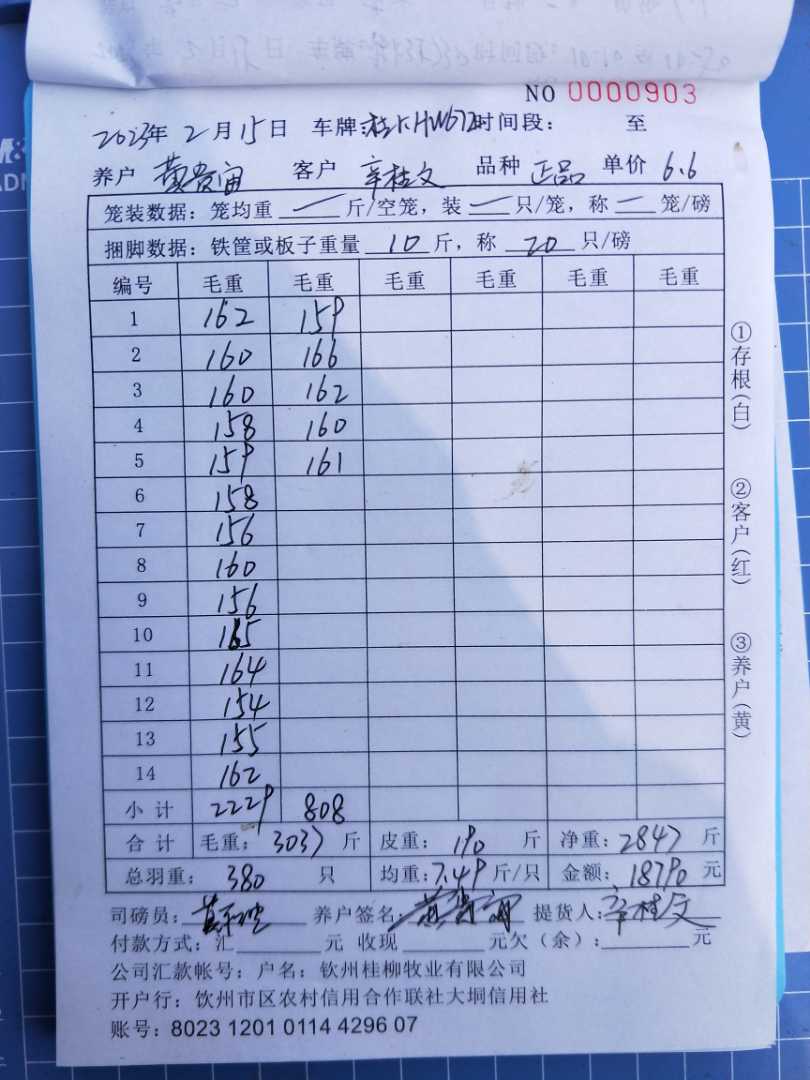 NO 0000903
2023年 2月15日 车牌:桂KHW672时间段: 至
养户 黄贵宙 客户 辛桂文 品种 正品 单价 6.6
笼装数据: 笼均重 一 斤/空笼, 装 一 只/笼, 称 一 笼/磅
捆脚数据: 铁筐或板子重量 10 斤, 称 20 只/磅
编号 毛重 毛重 毛重 毛重 毛重 毛重
1 162 159
2 160 166
3 160 162
4 158 160
5 159 161
6 158
7 156
8 160
9 156
10 165
11 164
12 154
13 155
14 162
小计 2229 808
合计 毛重: 3037 斤 皮重: 190 斤 净重: 2847 斤
总羽重: 380 只 均重: 7.49 斤/只 金额: 18790 元
司磅员: 养户签名: 黄贵宙 提货人: 辛桂文
付款方式: 汇 元 收现 元欠(余): 元
公司汇款帐号: 户名: 钦州桂柳牧业有限公司
开户行: 饮州市区农村信用合作联社大垌信用社
账号: 8023 1201 0114 4296 07
①存根(白)
②客户(红)
③养户(黄)